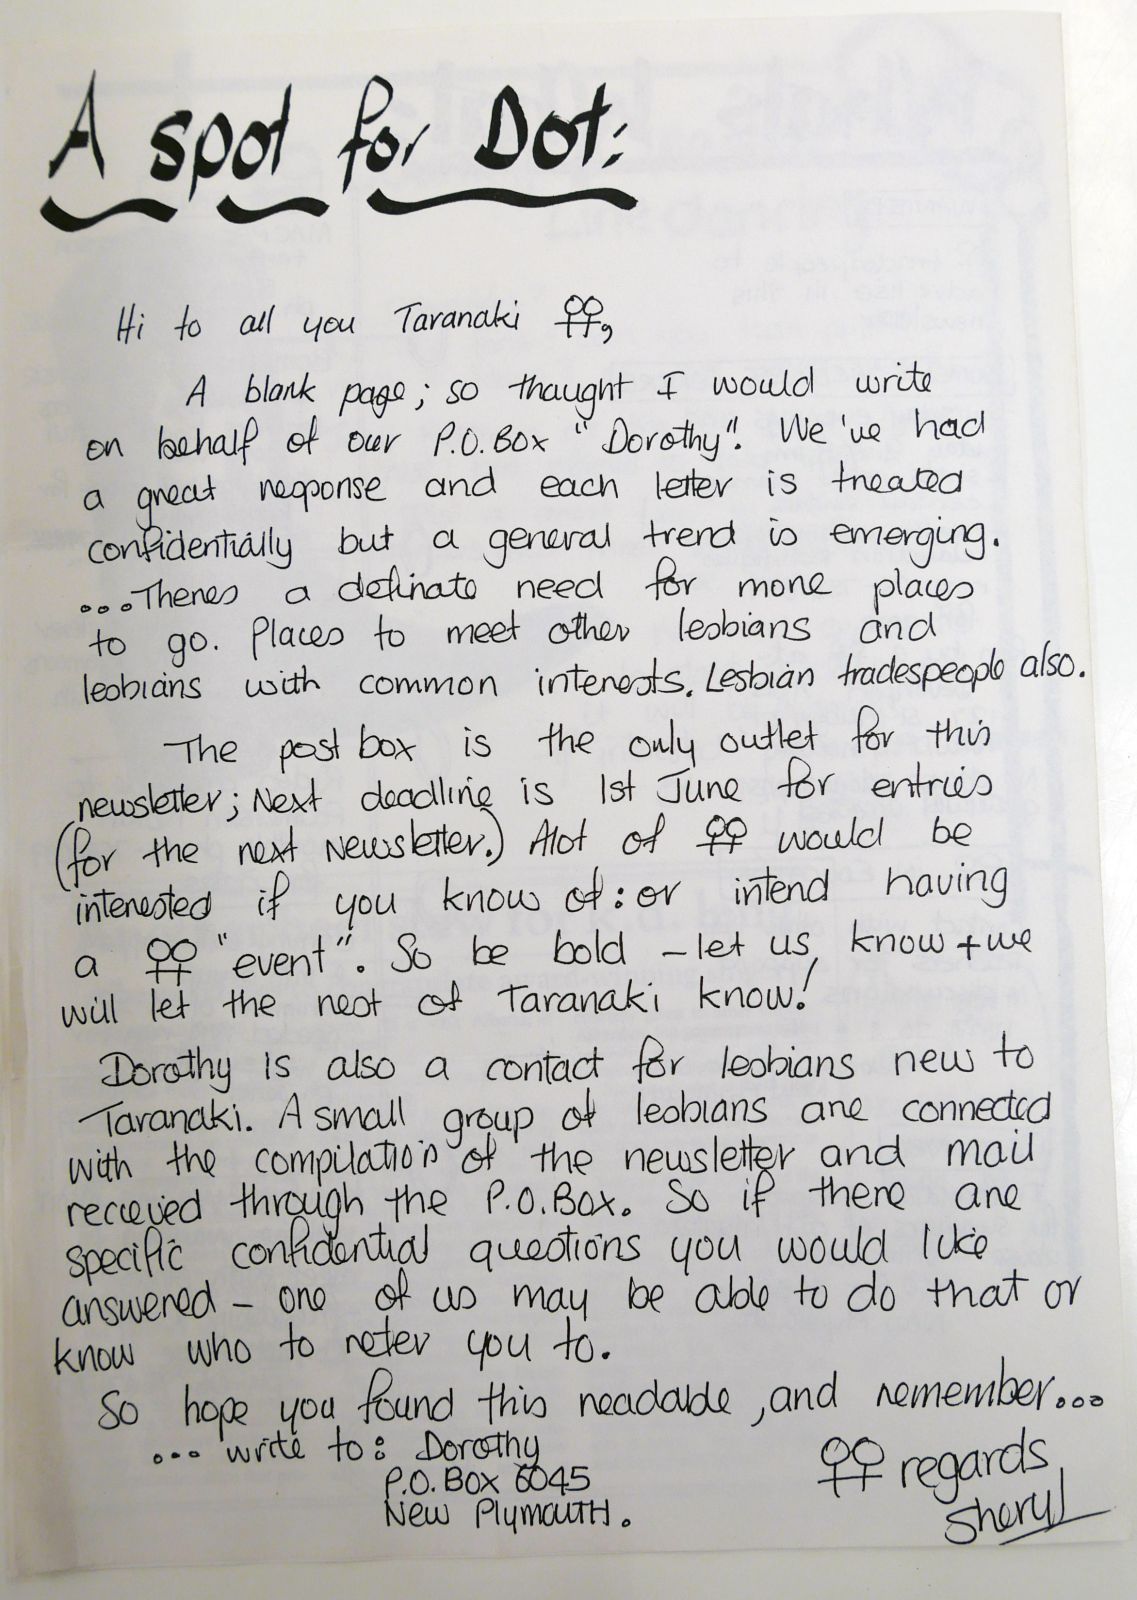 A spot for Dot:
Hi to all you Taranaki ⚢,
A blank page; so thought I would write
on behalf of our P.O. Box "Dorothy". We've had
a great response and each letter is treated
confidentially but a general trend is emerging.
...Theres a definate need for more places
to go. Places to meet other lesbians and
lesbians with common interests. Lesbian tradespeople also.
The post box is the only outlet for this
newsletter; Next deadline is 1st June for entries
(for the next Newsletter.) Alot of ⚢ would be
interested if you know of: or intend having
a ⚢ "event". So be bold - let us know + we
will let the rest of Taranaki know!
Dorothy is also a contact for lesbians new to
Taranaki. A small group of lesbians are connected
with the compilation of the newsletter and mail
recieved through the P.O. Box. So if there are
specific confidential questions you would like
answered - one of us may be able to do that or
know who to refer you to.
So hope you found this readable, and remember...
... write to: Dorothy
P.O. Box 6045
New Plymouth.
⚢ regards
Sheryl